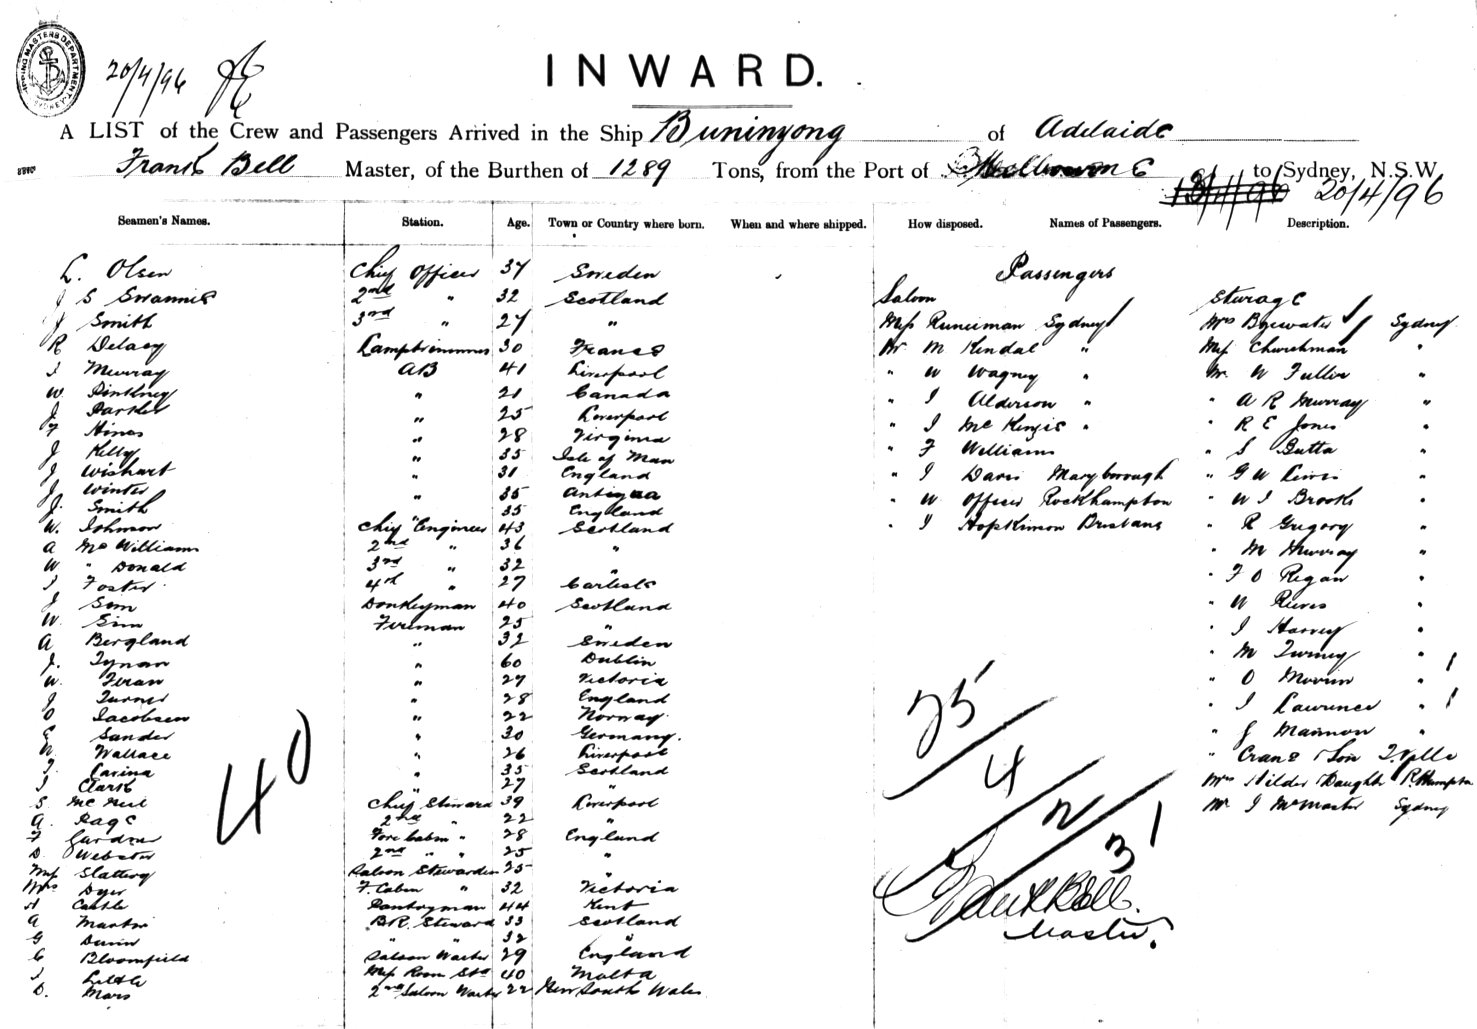 SHIPPING MASTERS DEPARTMENT SYDNEY
20/4/96
INWARD.
A LIST of the Crew and Passengers Arrived in the Ship Buninyong of Adelaide
Frank Bell Master, of the Burthen of 1289 Tons, from the Port of Melbourne to Sydney, N.S.W
20/4/96
Seamen's Names. Station. Age. Town or Country where born. When and where shipped. How disposed. Names of Passengers. Description.
L. Olsen Chief Officer 37 Sweden
J S Swannie 2nd " 32 Scotland
J Smith 3rd " 27 "
R Delacy Lamptrimmer 30 France
J Murray AB 41 Liverpool
W Pinkney " 21 Canada
J Parker " 25 Liverpool
F Hines " 28 Virginia
J Kelly " 35 Isle of Man
J Wishart " 31 England
J Winter " 35 Antigua
J. Smith " 35 England
W. Johnson Chief Engineer 43 Scotland
A McWilliams 2nd " 36 "
W " Donald 3rd " 32 "
J Foster 4th " 27 Carlisle
J Sim Donkeyman 40 Scotland
W. Sim Fireman 25 "
A Bergland " 32 Sweden
J. Tynan " 60 Dublin
W. Firan " 27 Victoria
J Turner " 28 England
O Jacobsen " 22 Norway.
E Sander " 30 Germany.
W. Wallace " 26 Liverpool
J. Carina " 35 Scotland
J Clark " 27 "
S McNeil Chief Steward 39 Liverpool
A. Page 2nd " 22 "
F Gardner Fore Cabin " 28 England
D. Webster 2nd " " 25 "
Miss Slattery Saloon Stewardess 25 "
Mrs Dyer F Cabin " 32 Victoria
A Castle Pantryman 44 Kent
A Martin B.R. Steward 33 Scotland
G Dunn " " 32 "
C Bloomfield Saloon Waiter 29 England
J Little Mess Room Std 40 Malta
D. Mars 2nd Saloon Waiter 22 New South Wales
40
Passengers
Saloon
Miss Runciman Sydney
Mr M Kendal "
" W Wagney "
" J Alderson "
" J McKenzie "
" F Williams
" J Davis Maryborough
" W Officer Rockhampton
" J Hopkinson Brisbane
Steerage
Mrs Byewater Sydney
Miss Churchman "
Mr W Fuller "
" A R Murray "
" R E Jones "
" S Butta "
" G W Lewis "
" W J Brooks "
" R Gregory "
" M Murray "
" F O Regan "
" W Reeves "
" J Harvey "
" M Turney "
" O "
" J Lawrence "
" J Mannon "
" Crane & Son T.Ville
Mrs Hilder & Daughter R.Hampton
Mr J McMaster Sydney
25
4
2
31
Frank Bell.
Master.